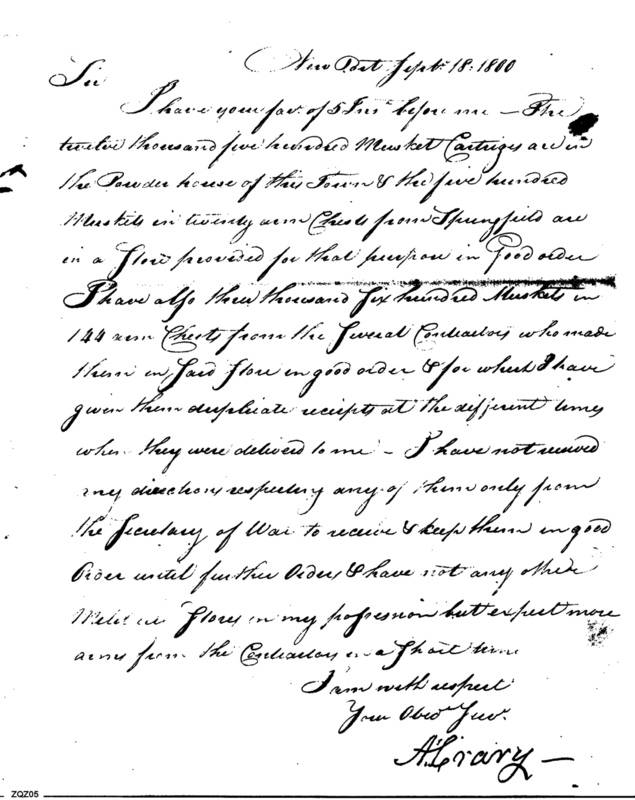 New Port Sept. 18. 1800
Sir
I have your fav. of 5 Inst before me — The
twelve thousand five hundred Musket Cartriges are in
the Powder house of this Town & the five hundred
Muskets in twenty arm Chests from Springfield are
in a Store provided for that purpose in Good order
I have also three thousand Six hundred Muskets in
144 arm Chests from the Several Contractors who made
them in Said Store in good order & for which I have
given them duplicate recipts at the different times
when they were delivered to me — I have not received
any directions respecting any of them only from
the Secretary of War to receive & keep them in good
Order until further Orders & have not any other
Stores in my possession but expect more
arms from the Contractors in a Short time
I am with respect
Your Obed. Serv.
A. Crary —
ZQZ05